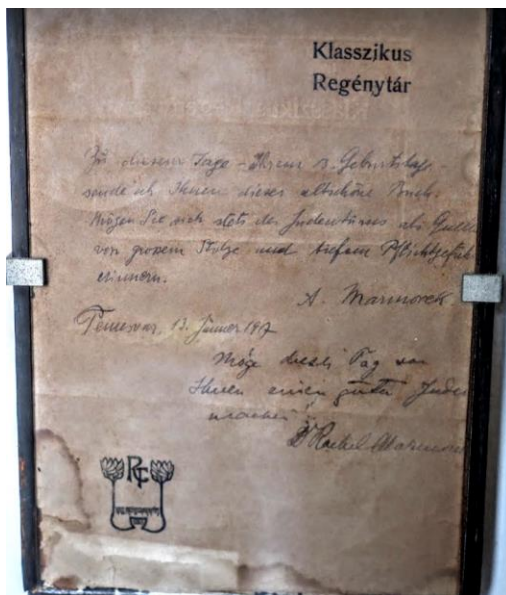 Klasszikus
Regénytár
Zu diesem Tage - Ihrem 13. Geburtstage -
sende ich Ihnen dieses altschöne Buch.
Mögen Sie sich stets des Judentums als Quelle
von grossem Stolze und tiefem Pflichtgefühl
erinnern.
A. Marmorek
Temesvar, 13. Jänner 197
Möge dieser Tag von
Ihnen einen guten Juden
machen!
Dr Rachel Marmorek
RT